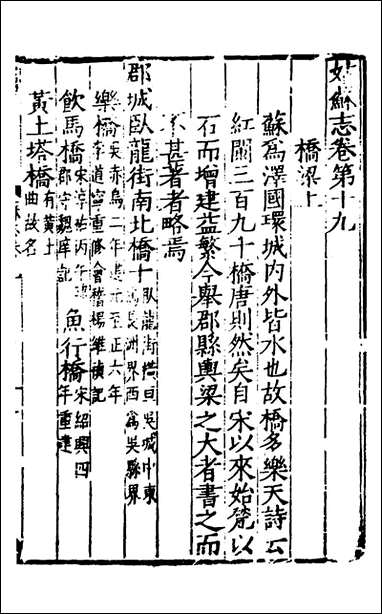 姑蘇志卷第十九
橋梁上
蘇爲澤國環城内外皆水也故橋多樂天詩云
紅闌三百九十橋唐則然矣自宋以來始甃以
石而增建益繁今舉郡縣輿梁之大者書之而
不甚著者略焉
郡城臥龍街南北橋十臥龍街橫亘吳城中東爲長洲界西爲吳縣界
樂橋吳赤烏二年建元至正六年李道寧重修會稽楊維禎記
飲馬橋宋淳祐丙午郡守魏庠記 魚行橋宋紹興四年重建
黃土塔橋有黃土曲故名